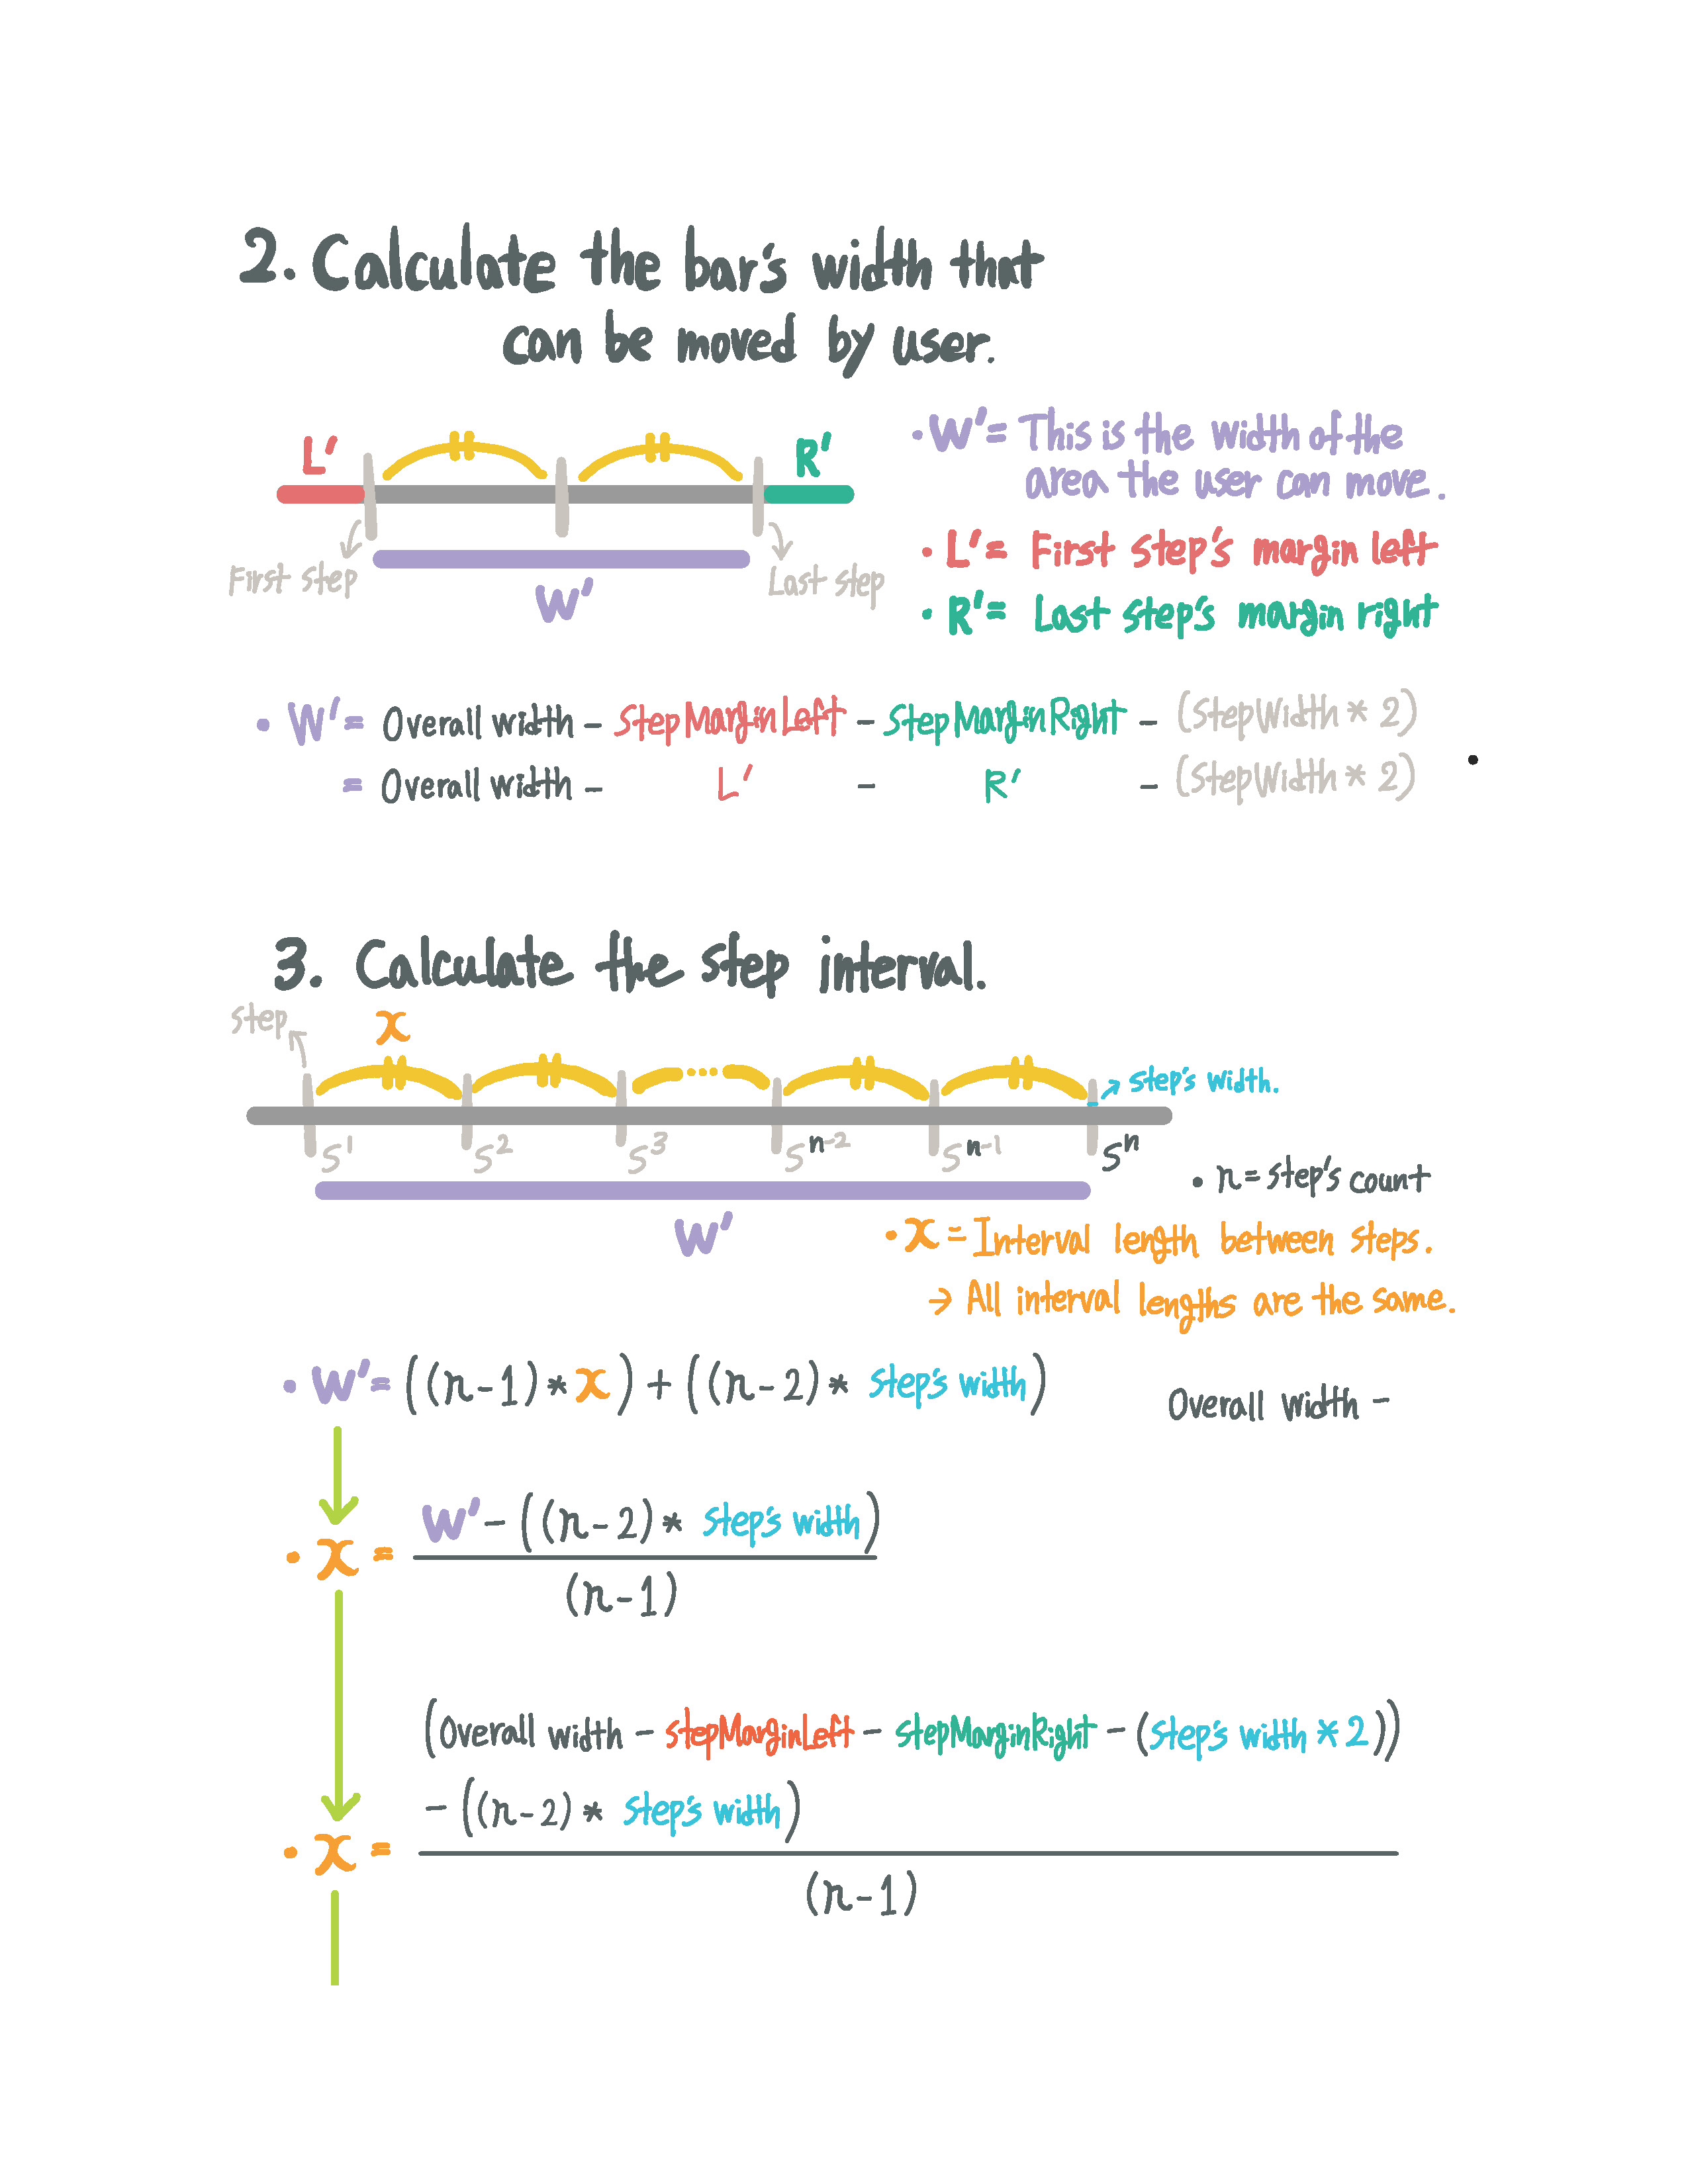 2. Calculate the bar's width that
can be moved by user.
L'
R'
First step
Last step
W'
• W' = This is the width of the
area the user can move.
• L' = First step's margin left
• R' = Last step's margin right
• W' = Overall width - StepMarginLeft - StepMarginRight - (StepWidth * 2)
= Overall width - L' - R' - (StepWidth * 2)
3. Calculate the step interval.
step
x
step's width.
S¹ S² S³ Sⁿ⁻² Sⁿ⁻¹ Sⁿ
W'
• n = step's count
• x = Interval length between steps.
→ All interval lengths are the same.
• W' = ((n-1) * x) + ((n-2) * step's width)
Overall width -
W' - ((n-2) * step's width)
• x =
(n-1)
(Overall width - stepMarginLeft - stepMarginRight - (step's width * 2))
- ((n-2) * step's width)
• x =
(n-1)